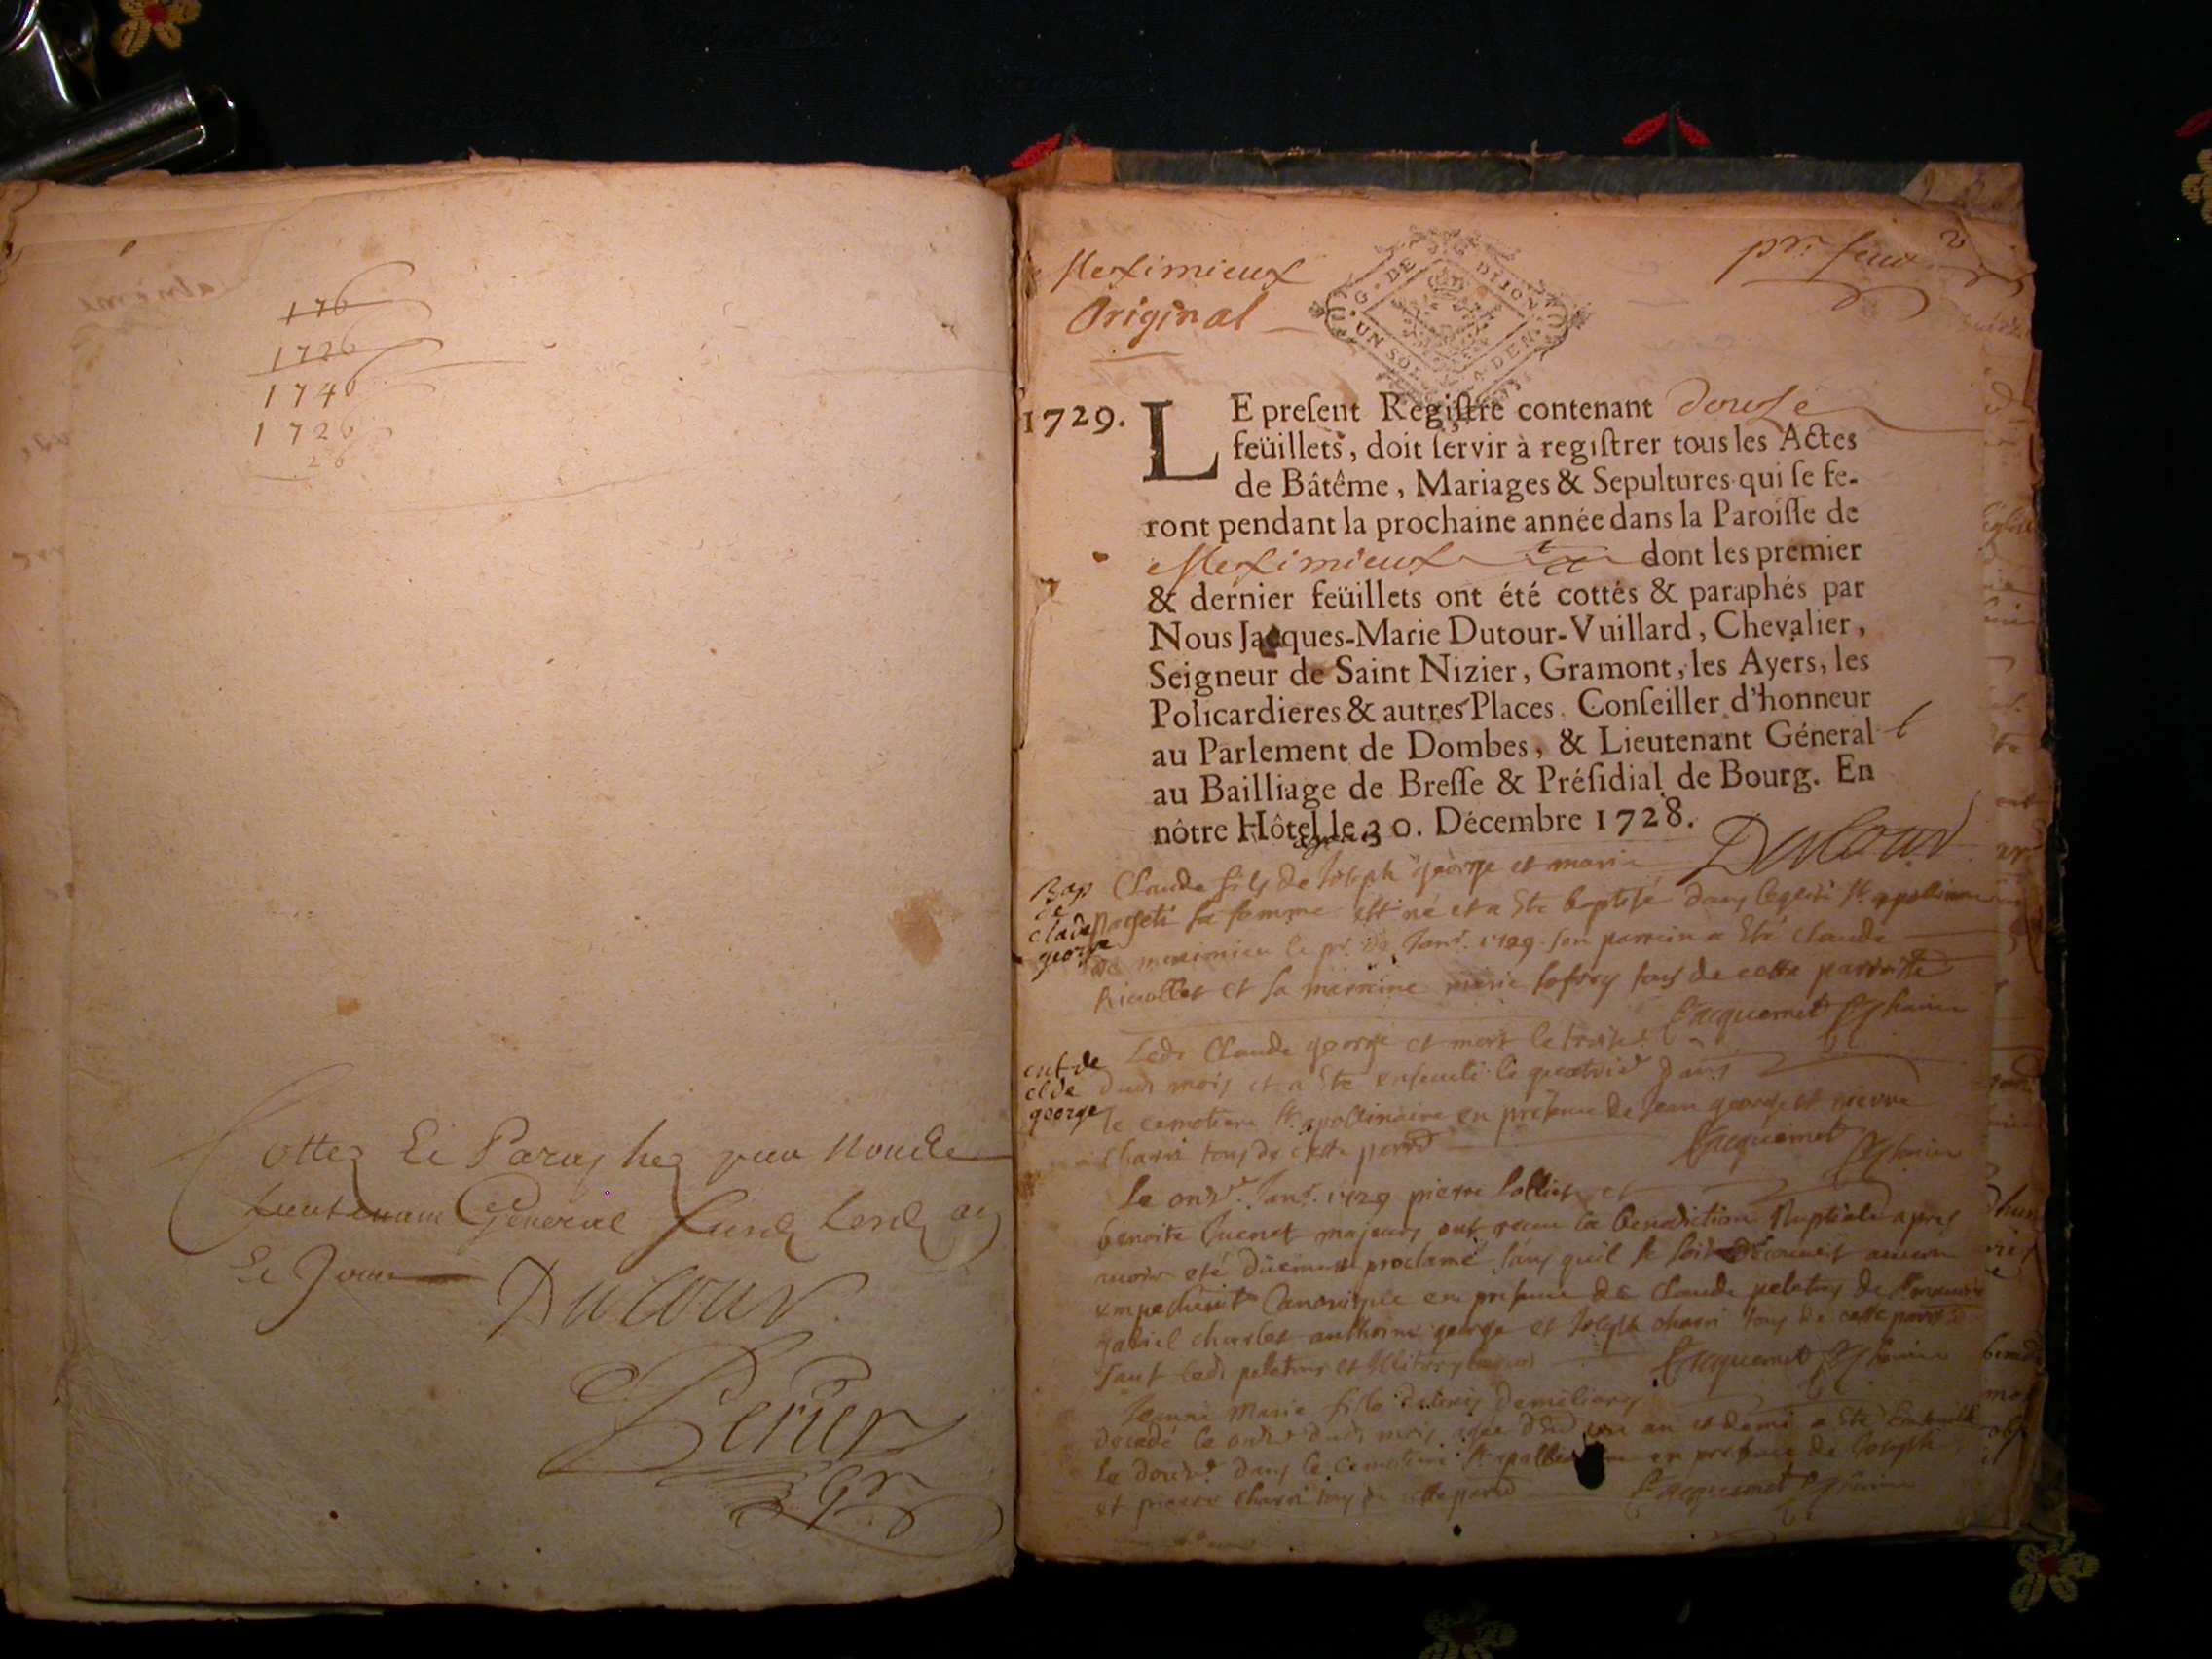 176
1726
1746
1726
26
Cottez Et Paraphez par Nous
Lieutenant General
Le Jour
Dutour
Perier
Meximieux
Original
pr. feuil
2
G. DE DIJON
UN SOL 4 DEN.
1729. LE preſent Regiſtre contenant douze
feüillets, doit ſervir à regiſtrer tous les Actes
de Bâtême, Mariages & Sepultures qui ſe fe-
ront pendant la prochaine année dans la Paroiſſe de
Meximieux dont les premier
& dernier feüillets ont été cottés & paraphés par
Nous Jacques-Marie Dutour-Vuillard, Chevalier,
Seigneur de Saint Nizier, Gramont, les Ayers, les
Policardieres & autres Places. Conſeiller d'honneur
au Parlement de Dombes, & Lieutenant Géneral
au Bailliage de Breſſe & Préſidial de Bourg. En
nôtre Hôtel le 30. Décembre 1728.
Dutour
Bap
de
claude
george
Claude fils de Joseph george et marie
sa femme est né et a Eté baptisé dans leglise St. appollinaire
de meximieu le pr. de Janr. 1729. son parrein a Eté Claude
et sa marreine marie tous de cette parroisse
Jacquemet
ent de
cl de
george
Ledt Claude george et mort le troise
dudt mois et a Eté enseveli le quatrie dans
le cemetiere St. apollinaire en presence de Jean george et pierre
charri tous de cette parr
Jacquemet
Le onze. Janr. 1729 pierre et
benoite majeurs ont receu la benediction Nuptiale apres
avoir eté düement proclamé sans quil se soit decouvert aucun
empechemt Canonique en presence de Claude peloton de
gabriel charles anthoine george et Joseph charri tous de cette parr
sauf ledt
Jacquemet
Jeanne Marie fille
decedé le onze dudt mois agée un an et demi a Eté
le douze dans le cemetiere St. en presence de Joseph
et pierre charri tous de cette parr
Jacquemet